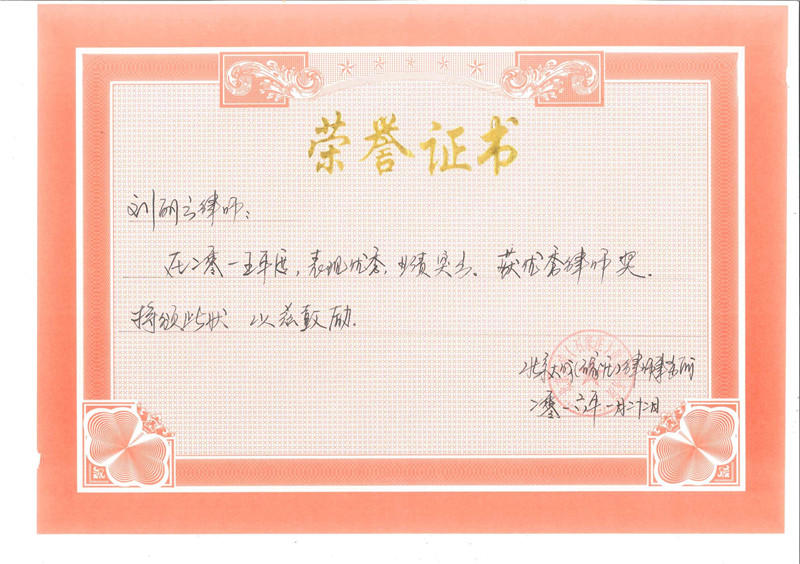 荣誉证书
刘丽云律师:
在二零一五年度,表现优秀,业绩突出、获优秀律师奖.
特颁此状 以兹鼓励.
北京大成(石家庄)律师事务所
二零一六年一月二十二日